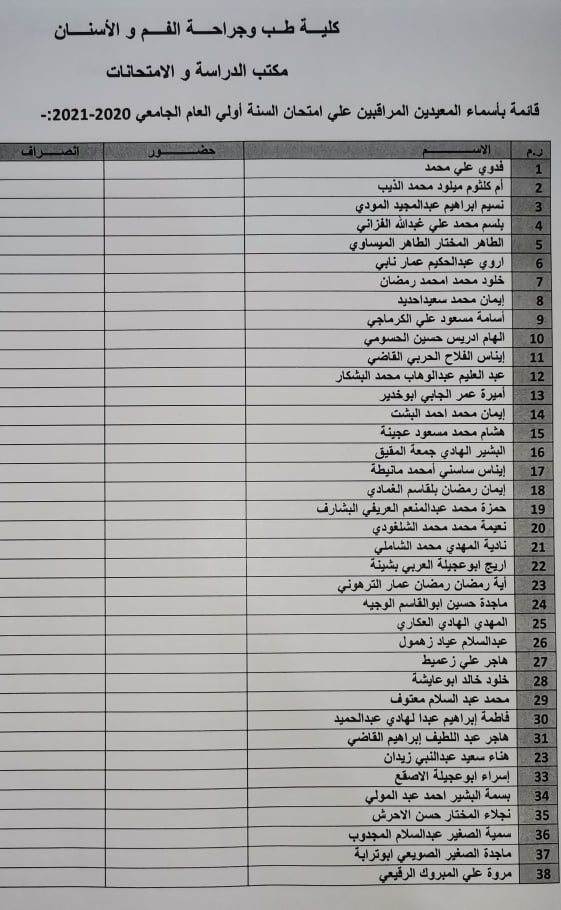 كليـــة طـــب وجراحـــة الفـــم و الأسنـــان
مكتب الدراسة و الامتحانات
قائمة بأسماء المعيدين المراقبين علي امتحان السنة أولي العام الجامعي 2020-2021:-
ر.م الاســــم حضـــــور انصـــراف
1 فدوي علي محمد
2 أم كلثوم ميلود محمد الذيب
3 نسيم ابراهيم عبدالمجيد المودي
4 بلسم محمد علي غبدالله الفزاني
5 الطاهر المختار الطاهر الميساوي
6 اروي عبدالحكيم عمار نابي
7 خلود محمد امحمد رمضان
8 إيمان محمد سعيداحديد
9 أسامة مسعود علي الكرماجي
10 الهام ادريس حسين الحسومي
11 إيناس الفلاح الحربي القاضي
12 عبد العليم عبدالوهاب محمد البشكار
13 أميرة عمر الجابي ابوخدير
14 إيمان محمد احمد البشت
15 هشام محمد مسعود عجينة
16 البشير الهادي جمعة المقيق
17 إيناس ساسني أمحمد مانيطة
18 إيمان رمضان بلقاسم الغمادي
19 حمزة محمد عبدالمنعم العريفي البشارف
20 نعيمة محمد محمد الشلغودي
21 نادية المهدي محمد الشاملي
22 اريج ابوعجيلة العربي بشينة
23 أية رمضان رمضان عمار الترهوني
24 ماجدة حسين ابوالقاسم الوجيه
25 المهدي الهادي العكاري
26 عبدالسلام عياد زهمول
27 هاجر علي زعميط
28 خلود خالد ابوعايشة
29 محمد عبد السلام معتوف
30 فاطمة إبراهيم عبدا لهادي عبدالحميد
31 هاجر عبد اللطيف إبراهيم القاضي
23 هناء سعيد عبدالنبي زيدان
33 إسراء ابوعجيلة الاصقع
34 بسمة البشير احمد عبد المولي
35 نجلاء المختار حسن الاحرش
36 سمية الصغير عبدالسلام المجدوب
37 ماجدة الصغير الصويعي ابوترابة
38 مروة علي المبروك الرقيعي